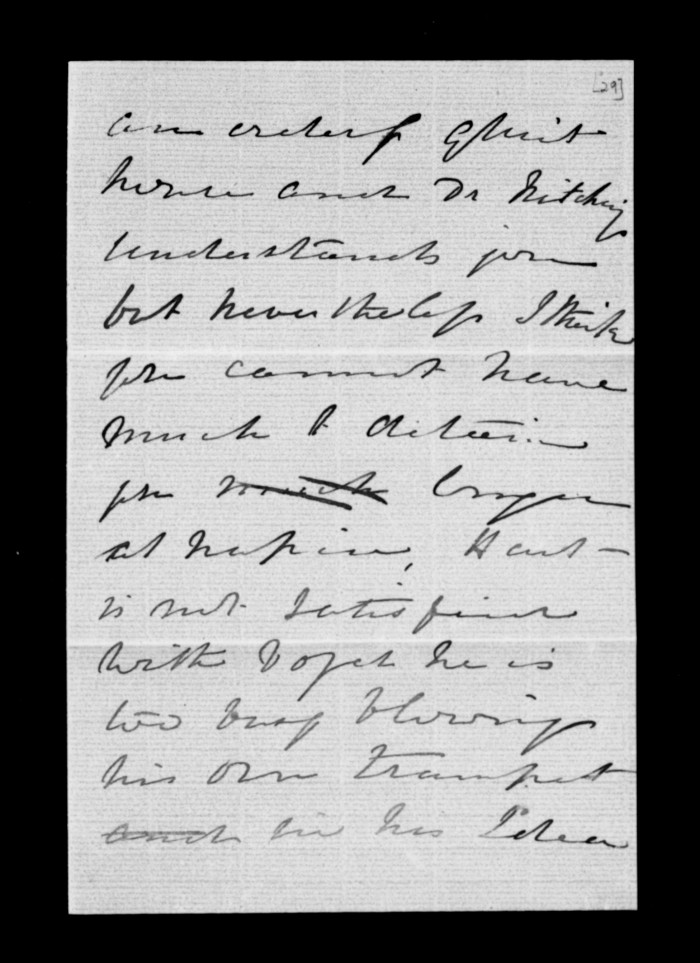 [29]
an orderly Quiet
house and Dr Hitchings
understands you
but nevertheless I think
you cannot have
much to detain
you much longer
at Napier, Hart
is not satisfied
with he is
too busy blowing
his own trumpet
and in his Idea